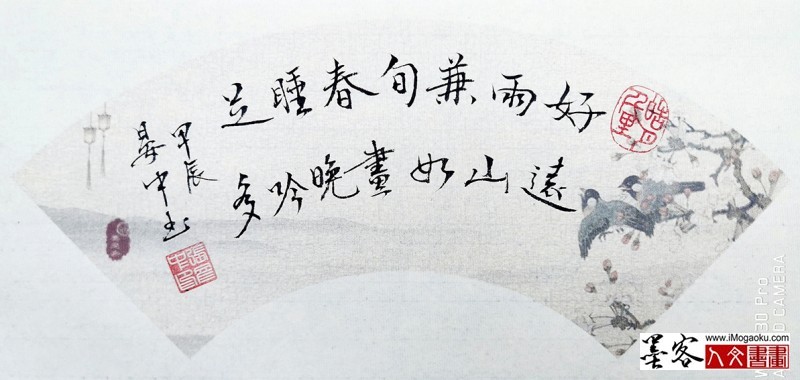 好雨兼旬春睡足
遠山如畫晚吟多
甲辰
晏中书
www.iMogaoku.com
墨客
人文書畫
30 Pro
CAMERA